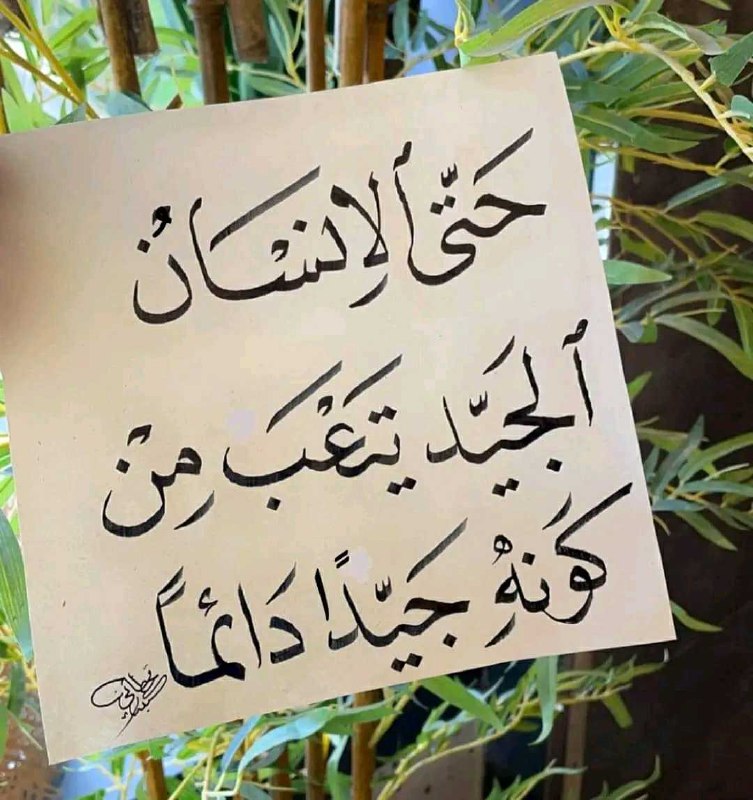 حَتّى ٱلإِنسَانُ
ٱلجَيّد يَتعْبَ مِنْ
كَونهِ جَيّدًا دَائماً